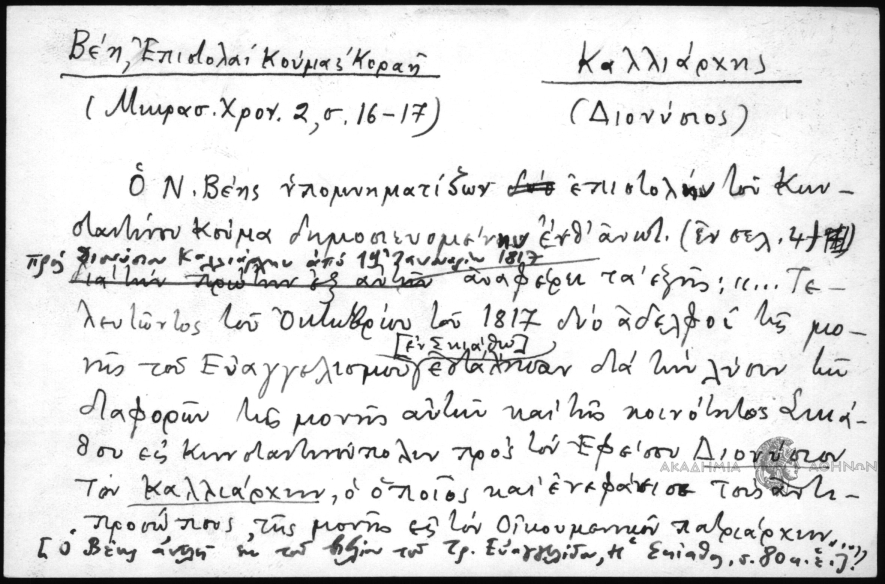 Βέη, Ἐπιστολαί Κούμα & Κοραῆ
Καλλιάρχης
(Μικρασ. Χρον. 2, σ. 16-17)
(Διονύσιος)
Ὁ Ν. Βέης ὑπομνηματίζων δύο ἐπιστολήν τοῦ Κων-
σταντίνου Κούμα δημοσιευομένην ἔνθ' ἀνωτ. (ἐν σελ. 4
πρός Διονύσιον Καλλιάρχην ἀπό 19 Ἰανουαρίου 1817
ἀναφέρει τά ἑξῆς: "... Τε-
λευτῶντος τοῦ Ὀκτωβρίου τοῦ 1817 δύο ἀδελφοί τῆς μο-
[ἐν Σκιάθῳ]
νῆς τοῦ Εὐαγγελισμοῦ ἐστάλησαν διά τήν λύσιν τῶν
διαφορῶν τῆς μονῆς αὐτῶν καί τῆς κοινότητος Σκιά-
θου εἰς Κωνσταντινούπολιν πρός τόν Ἐφέσου Διονύσιον
ΑΚΑΔΗΜΙΑ ΑΘΗΝΩΝ
τόν Καλλιάρχην, ὁ ὁποῖος καί ἐνεφάνισε τούς ἀντι-
προσώπους τῆς μονῆς εἰς τόν Οἰκουμενικόν πατριάρχην..."
[ὁ Βέης ἀντλεῖ ἐκ τοῦ βιβλίου τοῦ Τρ. Εὐαγγελίδου, Ἡ Σκίαθος, σ. 80 κ. ἑ.]